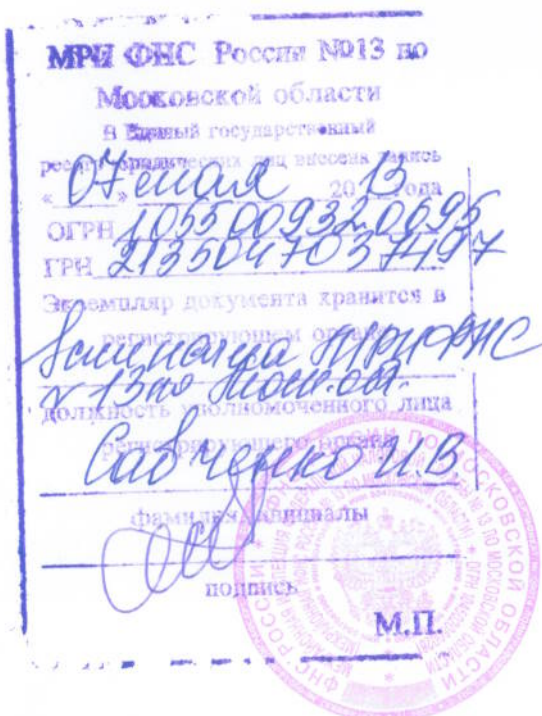 МРИ ФНС России №13 по
Московской области
В Единый государственный
реестр юридических лиц внесена запись
«07» мая 2013 года
ОГРН 1055009320695
ГРН 2135047037497
Экземпляр документа хранится в
регистрирующем органе
МРИ ФНС
№ 13 по Моск. обл.
должность уполномоченного лица
регистрирующего органа
Савченко И.В
фамилия, инициалы
подпись
М.П.